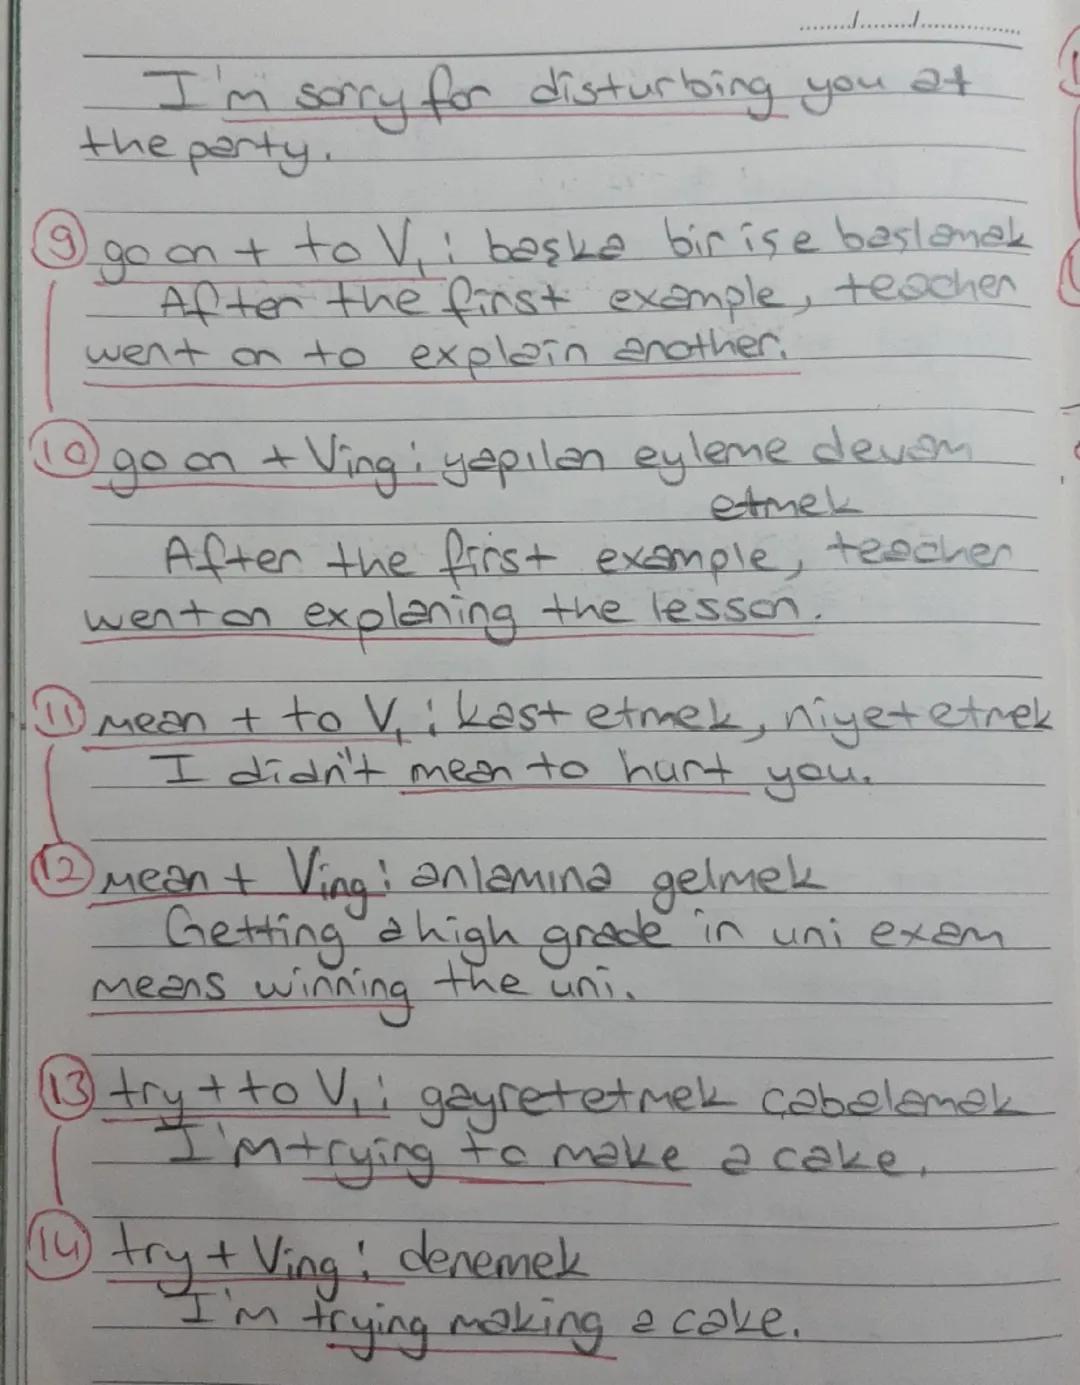 ......../......../...............
I'm sorry for disturbing you at
the party.
9 go on + to V₁ : başka bir işe başlamak
After the first example, teacher
went on to explain another.
10 go on + Ving : yapılan eyleme devam
etmek
After the first example, teacher
went on explaning the lesson.
11 mean + to V₁ : kast etmek, niyet etmek
I didn't mean to hurt you.
12 mean + Ving : anlamına gelmek
Getting a high grade in uni exam
means winning the uni.
13 try + to V₁ : gayret etmek çabalamak
I'm trying to make a cake.
14 try + Ving : denemek
I'm trying making a cake.